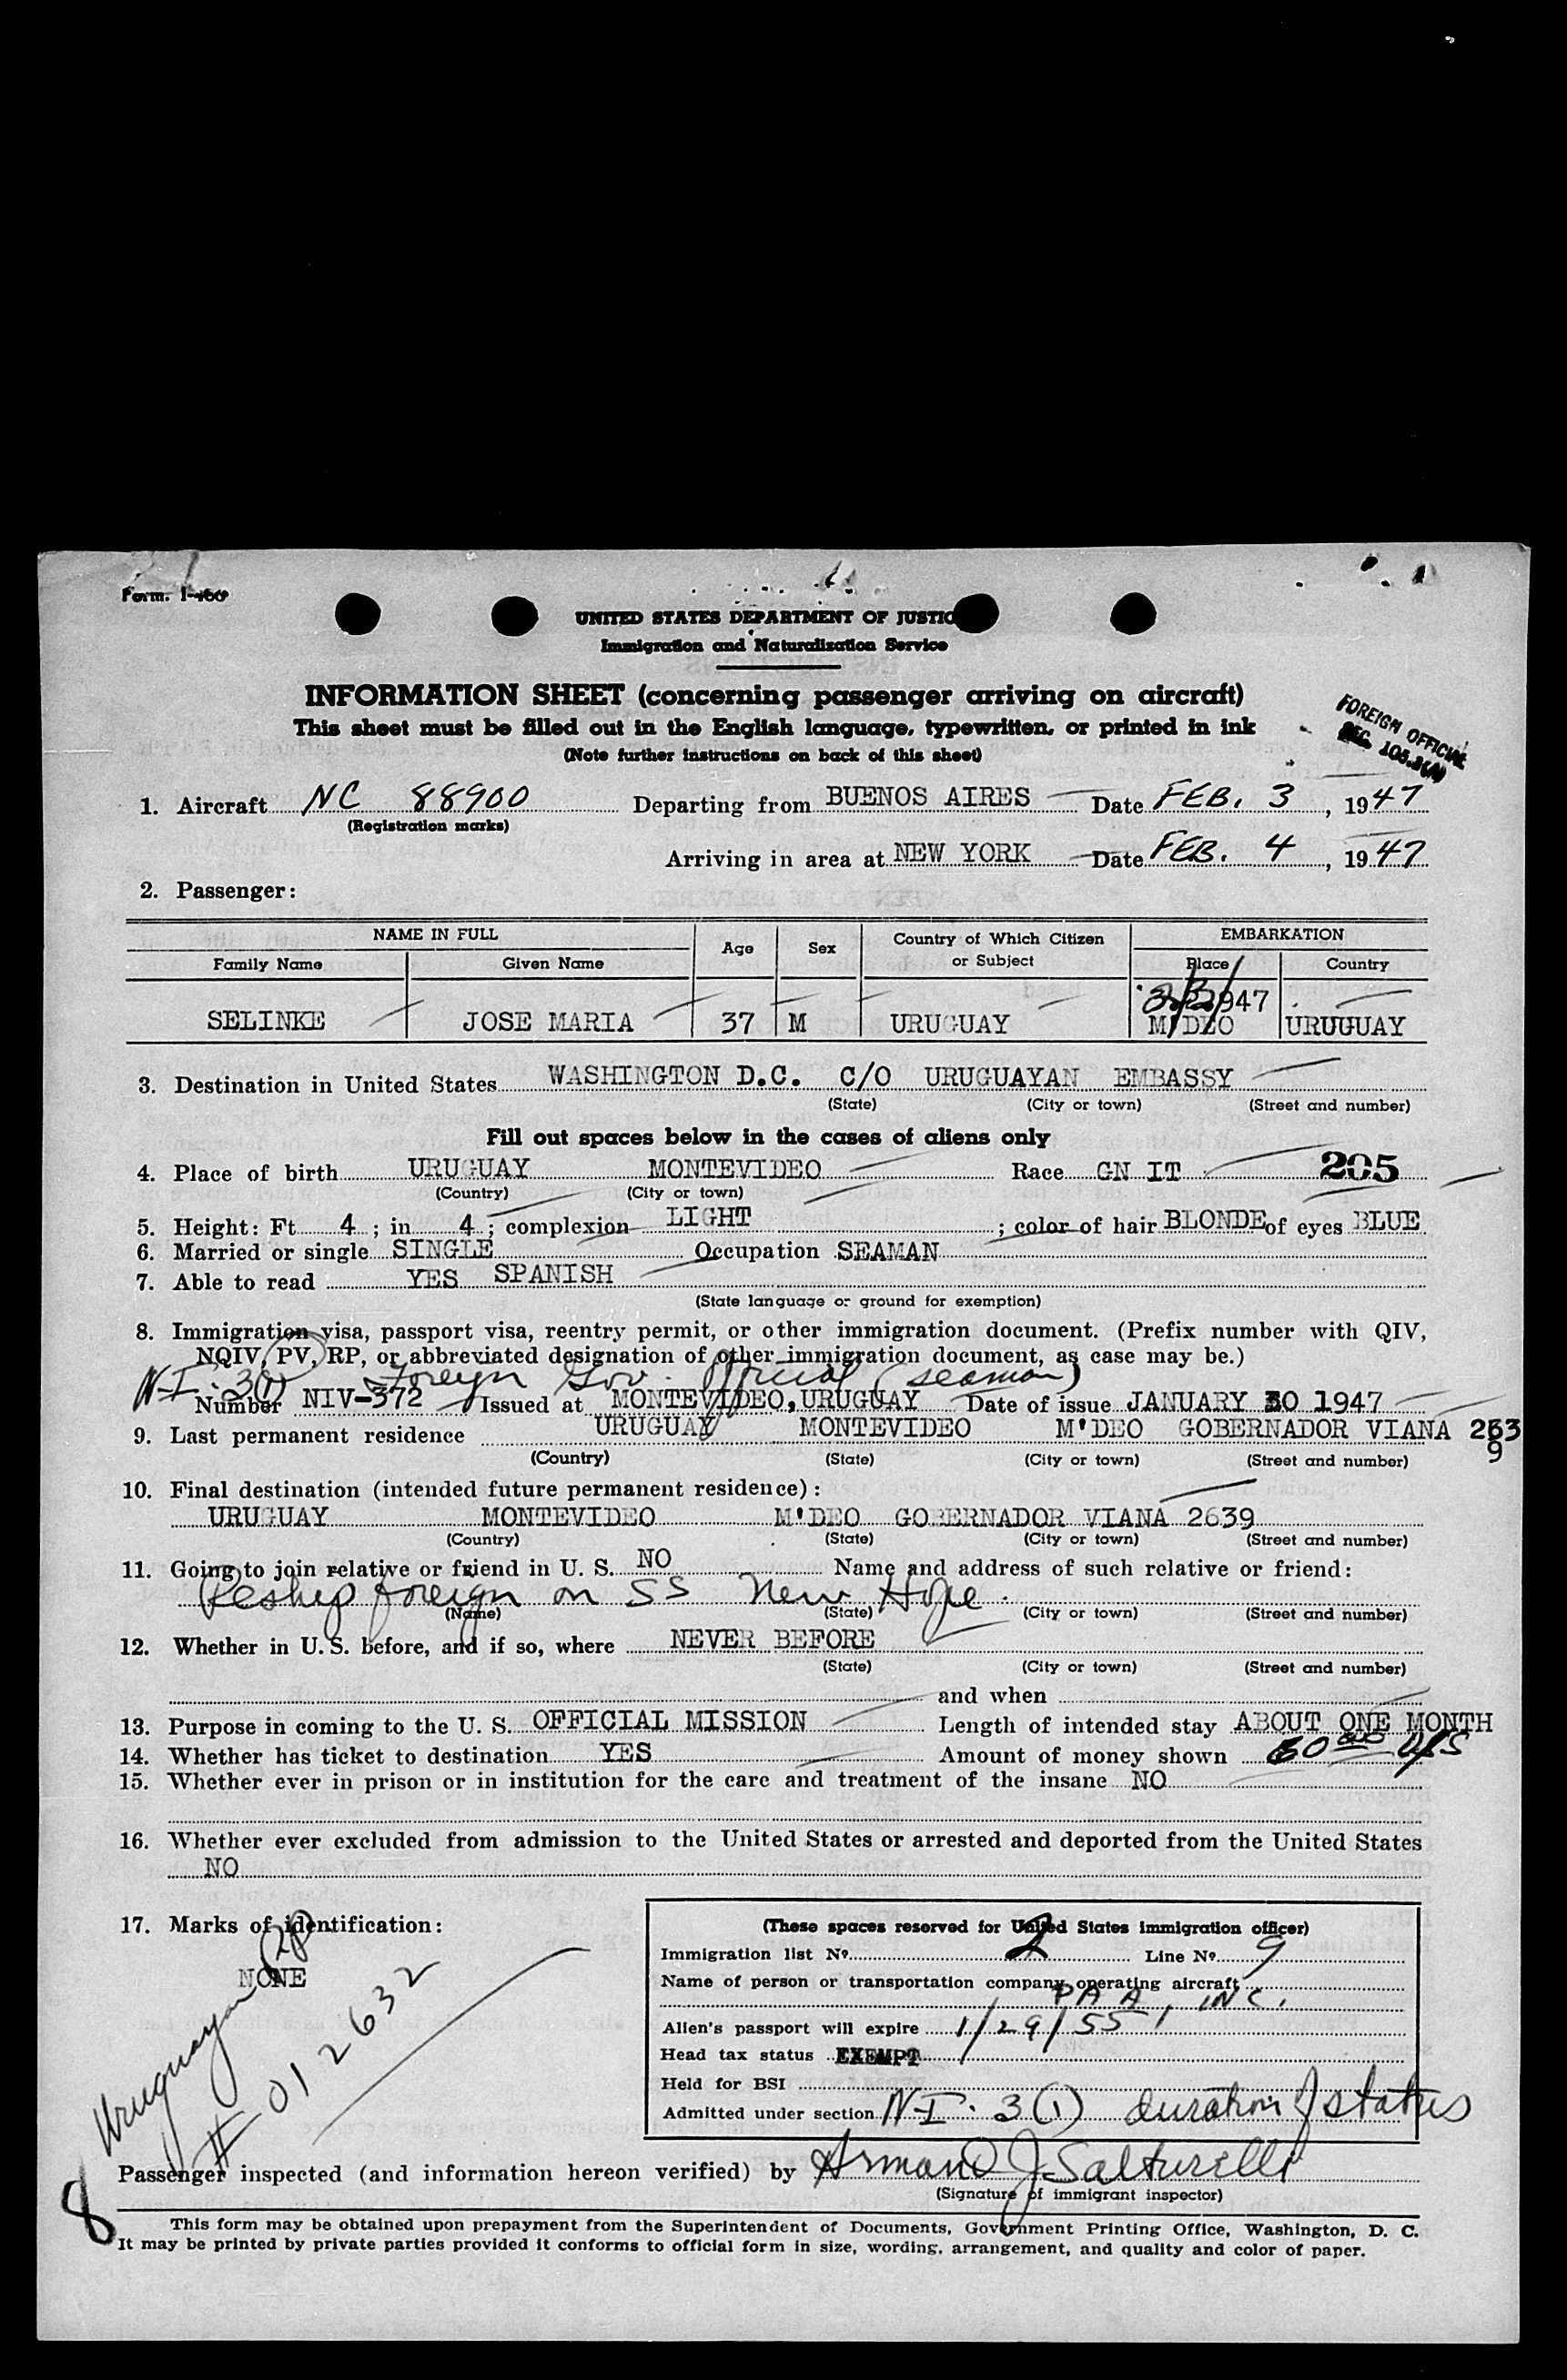 Form. I-466
UNITED STATES DEPARTMENT OF JUSTIC
Immigration and Naturalization Service
INFORMATION SHEET (concerning passenger arriving on aircraft)
This sheet must be filled out in the English language, typewritten, or printed in ink
(Note further instructions on back of this sheet)
FOREIGN OFFICIAL
SEC. 105.3(A)
1. Aircraft NC 88900 Departing from BUENOS AIRES Date FEB. 3, 1947
(Registration marks)
Arriving in area at NEW YORK Date FEB. 4, 1947
2. Passenger:
NAME IN FULL Age Sex Country of Which Citizen or Subject EMBARKATION
Family Name Given Name Place Country
947
SELINKE JOSE MARIA 37 M URUGUAY M'DEO URUGUAY
3. Destination in United States WASHINGTON D.C. C/O URUGUAYAN EMBASSY
(State) (City or town) (Street and number)
Fill out spaces below in the cases of aliens only
4. Place of birth URUGUAY MONTEVIDEO Race GN IT 205
(Country) (City or town)
5. Height: Ft 4; in 4; complexion LIGHT; color of hair BLONDE of eyes BLUE
6. Married or single SINGLE Occupation SEAMAN
7. Able to read YES SPANISH
(State language or ground for exemption)
8. Immigration visa, passport visa, reentry permit, or other immigration document. (Prefix number with QIV,
NQIV, PV, RP, or abbreviated designation of other immigration document, as case may be.)
N-I. 3(1) Foreign Gov. Official (seaman)
Number NIV-372 Issued at MONTEVIDEO, URUGUAY Date of issue JANUARY 30 1947
9. Last permanent residence URUGUAY MONTEVIDEO M'DEO GOBERNADOR VIANA 263
9
(Country) (State) (City or town) (Street and number)
10. Final destination (intended future permanent residence):
URUGUAY MONTEVIDEO M'DEO GOBERNADOR VIANA 2639
(Country) (State) (City or town) (Street and number)
11. Going to join relative or friend in U. S. NO Name and address of such relative or friend:
Reship foreign on SS New Hope.
(Name) (State) (City or town) (Street and number)
12. Whether in U. S. before, and if so, where NEVER BEFORE
(State) (City or town) (Street and number)
and when
13. Purpose in coming to the U. S. OFFICIAL MISSION Length of intended stay ABOUT ONE MONTH
14. Whether has ticket to destination YES Amount of money shown 60 00 U/S
15. Whether ever in prison or in institution for the care and treatment of the insane NO
16. Whether ever excluded from admission to the United States or arrested and deported from the United States
NO
17. Marks of identification:
NONE
Uruguayan PP
# 012632
(These spaces reserved for United States immigration officer)
Immigration list No. 2 Line No. 9
Name of person or transportation company operating aircraft
PAA, INC.
Alien's passport will expire 1/29/55
Head tax status EXEMPT
Held for BSI
Admitted under section N-I. 3(1) duration of status
Passenger inspected (and information hereon verified) by Armand J. Salturelli
(Signature of immigrant inspector)
8
This form may be obtained upon prepayment from the Superintendent of Documents, Government Printing Office, Washington, D. C.
It may be printed by private parties provided it conforms to official form in size, wording, arrangement, and quality and color of paper.